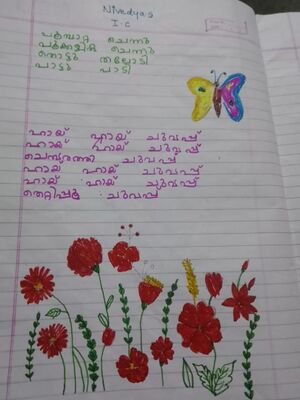 Nivedya S
I.C
പൂമ്പാറ്റ ചെന്നു
പൂക്കളിൽ ചെന്നു
തൊട്ടു തലോടി
പാട്ടു പാടി
ഹായ് ഹായ് ചുവപ്പ്
ഹായ് ഹായ് ചുവപ്പ്
ചെമ്പരത്തി ചുവപ്പ്
ഹായ് ഹായ് ചുവപ്പ്
ഹായ് ഹായ് ചുവപ്പ്
തെറ്റിപ്പൂ ചുവപ്പ്